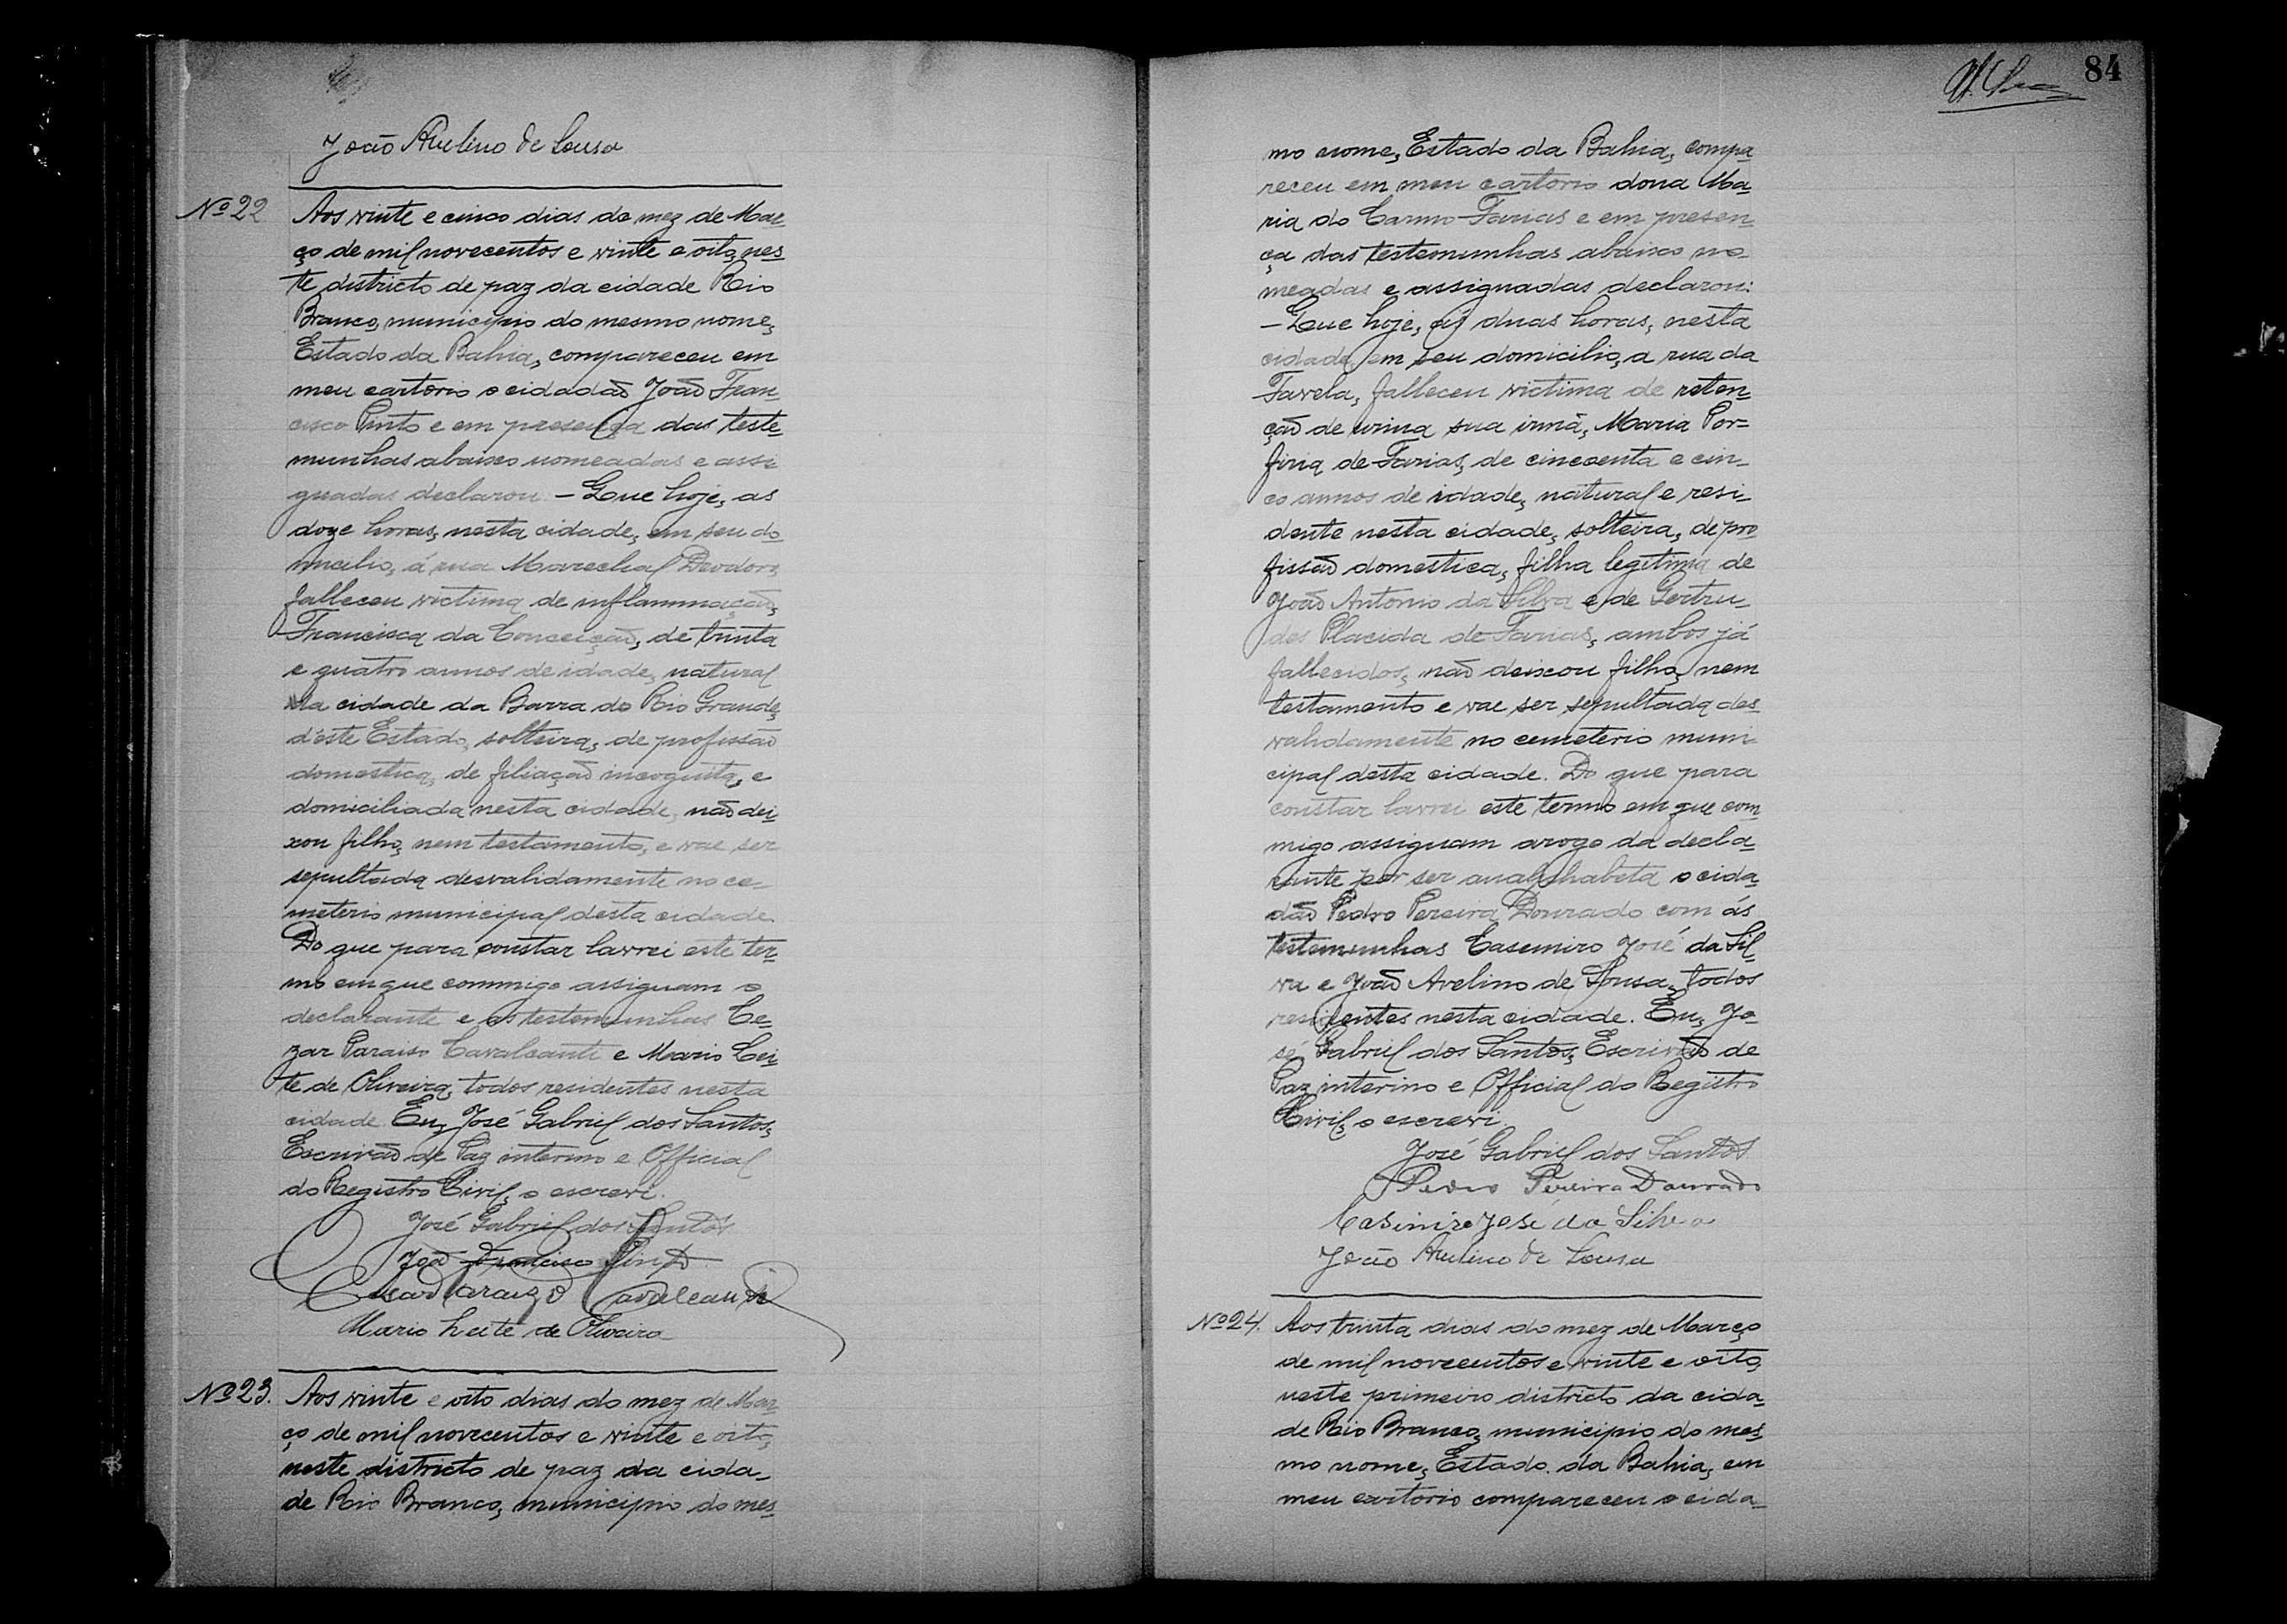 João Avelino de Sousa
Nº 22 Aos vinte e cinco dias do mez de Mar-
ço de mil novecentos e vinte e oito, nes-
te districto de paz da cidade Rio
Branco, municipio do mesmo nome,
Estado da Bahia, compareceu em
meu cartorio o cidadaõ Joaõ Fran-
cisco Pinto e em presença das teste-
munhas abaixo nomeadas e assi-
gnadas declarou - Que hoje, as
doze horas, nesta cidade, em seu do-
micilio, á rua Marechal Deodoro,
falleceu victima de inflammaçaõ,
Francisca da Conceiçaõ, de trinta
e quatro annos de idade, natural
da cidade da Barra do Rio Grande,
d'este Estado, solteira, de profissaõ
domestica, de filiaçaõ incognita, e
domiciliada nesta cidade, naõ dei-
xou filho, nem testamento, e vae ser
sepultada desvalidamente no ce-
meterio municipal desta cidade.
Do que para constar lavrei este ter-
mo em que commigo assignam o
declarante e as testemunhas Ce-
zar Paraiso Cavalcanti e Mario Lei-
te de Oliveira, todos residentes nesta
cidade. Eu, José Gabriel dos Santos,
Escrivaõ de Paz interino e Official
do Registro Civil, o escrevi.
José Gabriel dos Santos
Joaõ Francisco Pinto
Cesar Paraizo Cavalcanti
Mario Leite de Oliveira
Nº 23. Aos vinte e oito dias do mez de Mar-
ço de mil novecentos e vinte e oito,
neste districto de paz da cida-
de Rio Branco, municipio do mes-
84
mo nome, Estado da Bahia, compa-
receu em meu cartorio dona Ma-
ria do Carmo Farias e em presen-
ça das testemunhas abaixo no-
meadas e assignadas declarou:
- Que hoje, ás duas horas, nesta
cidade, em seu domicilio, a rua da
Favela, falleceu victima de reten-
çaõ de urina sua irmã, Maria Por-
firia de Farias, de cincoenta e cin-
co annos de idade, natural e resi-
dente nesta cidade, solteira, de pro-
fissaõ domestica, filha legitima de
Joaõ Antonio da Silva e de Gertru-
des Placida de Farias, ambos já
fallecidos, naõ deixou filho, nem
testamento e vae ser sepultada des-
validamente no cemeterio muni-
cipal desta cidade. Do que para
constar lavrei este termo em que com-
migo assignam arogo da decla-
rante por ser analphabeta o cida-
daõ Pedro Pereira Dourado com ás
testemunhas Casemiro José da Sil-
va e Joaõ Avelino de Sousa, todos
residentes nesta cidade. Eu, Jo-
sé Gabriel dos Santos, Escrivaõ de
Paz interino e Official do Registro
Civil, o escrevi.
José Gabriel dos Santos
Pedro Pereira Dourado
Casimiro José da Silva
João Avelino de Sousa
Nº 24. Aos trinta dias do mez de Março
de mil novecentos e vinte e oito,
neste primeiro districto da cida-
de Rio Branco, municipio do mes-
mo nome, Estado da Bahia, em
meu cartorio compareceu o cida-